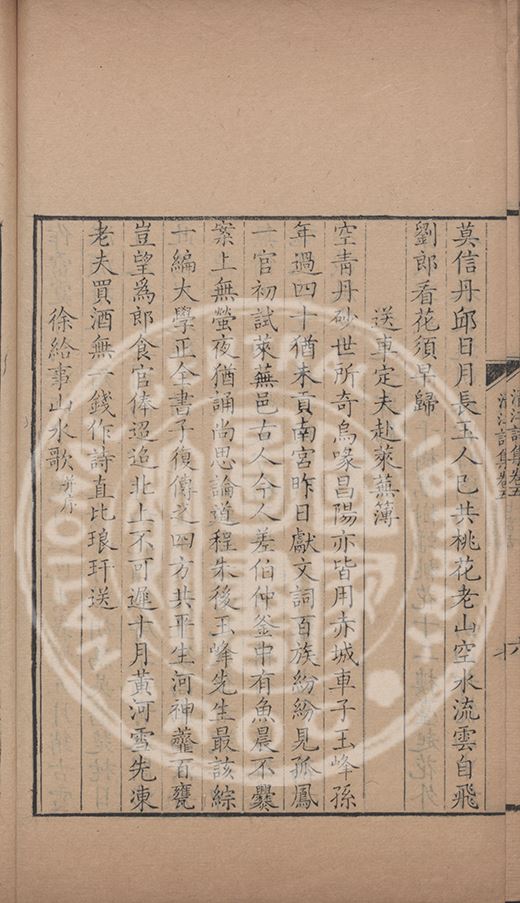 莫信丹邱日月長玉人已共桃花老山空水流雲自飛
劉郎看花須早歸
送車定夫赴萊蕪簿
空青丹砂世所奇烏喙昌陽亦皆用赤城車子玉峰孫
年過四十猶未貢南宮昨日獻文詞百族紛紛見孤鳳
一官初試萊蕪邑古人今人差伯仲釜中有魚晨不爨
案上無螢夜猶誦尚思論道程朱後玉峰先生最該綜
一編大學正全書子復傳之四方共平生河神虀百甕
豈望為郎食官俸迢迢北上不可遲十月黃河雪先凍
老夫買酒無一錢作詩直比琅玕送
徐給事山水歌并序
清江詩集卷五